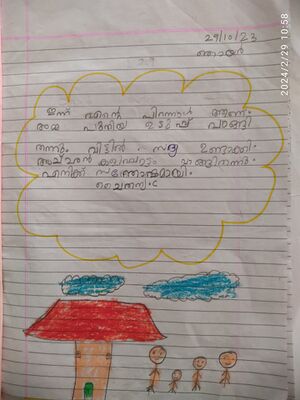 29/10/23
ഞായർ
ഇന്ന് എന്റെ പിറന്നാൾ ആണ്.
അമ്മ പുതിയ ഉടുപ്പ് വാങ്ങി
തന്നു. വീട്ടിൽ സദ്യ ഉണ്ടാക്കി.
അച്ഛൻ കളിപ്പാട്ടം വാങ്ങിതന്നു.
എനിക്ക് സന്തോഷമായി.
ചൈതന്യ.c
2024/2/29 10:58